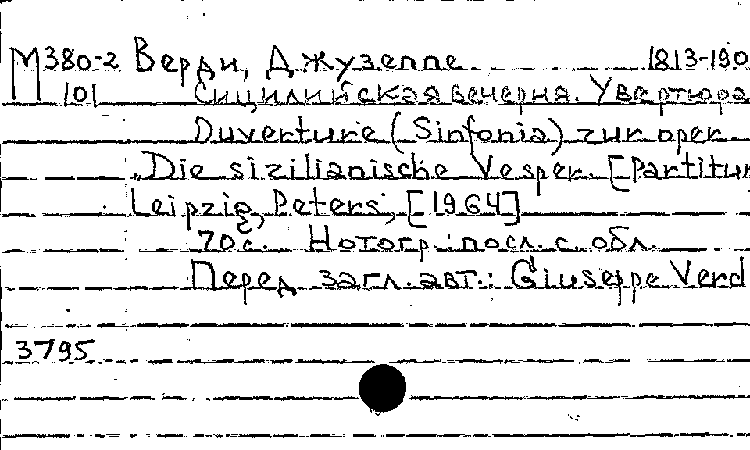 М380-2 Верди, Джузеппе 1813-190
101 Сицилийская вечерня. Увертюра
Ouverture (Sinfonia) zur oper
"Die sizilianische Vesper. [Partitur
Leipzig, Peters, [1964]
70 с. Нотогр.: посл. с. обл.
Перед загл. авт.: Giuseppe Verd
3795